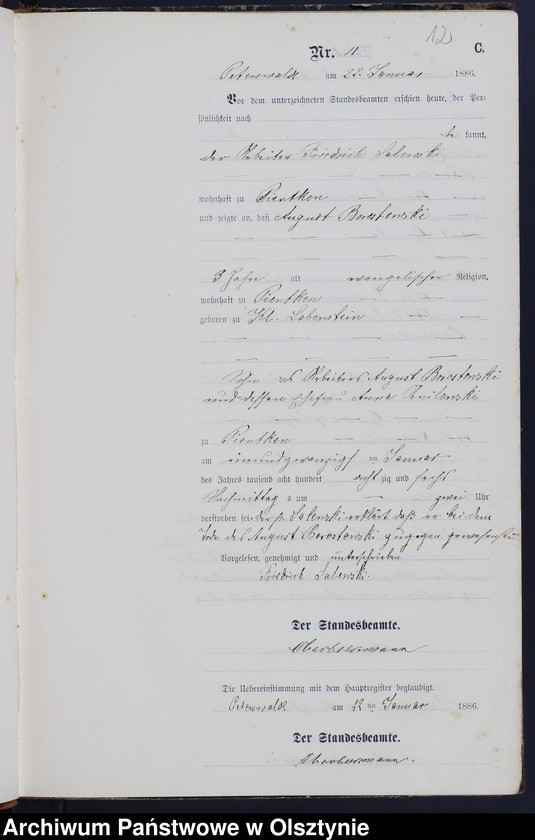 12
Nr. 11.
C.
Peterswalde am 22. Januar 1886.
Vor dem unterzeichneten Standesbeamten erschien heute, der Per-
sönlichkeit nach
be kannt,
der Arbeiter Friedrich Salewski
wohnhaft zu Pientken
und zeigte an, daß August Borostowski
3 Jahre alt evangelischer Religion,
wohnhaft zu Pientken
geboren zu Kl. Lobenstein
Sohn des Arbeiters August Borostowski
und dessen Ehefrau Anna
zu Pientken
am einundzwanzigsten Januar
des Jahres tausend acht hundert acht zig und sechs
Nachmittag s um zwei Uhr
verstorben sei. Der p. Salewski erklärt daß er bei dem
Tode des August Borostowski zugegen gewesen sei.
Vorgelesen, genehmigt und unterschrieben
Friedrich Salewski.
Der Standesbeamte.
Die Uebereinstimmung mit dem Hauptregister beglaubigt.
Peterswalde am 22 ten Januar 1886.
Der Standesbeamte.
Archiwum Państwowe w Olsztynie